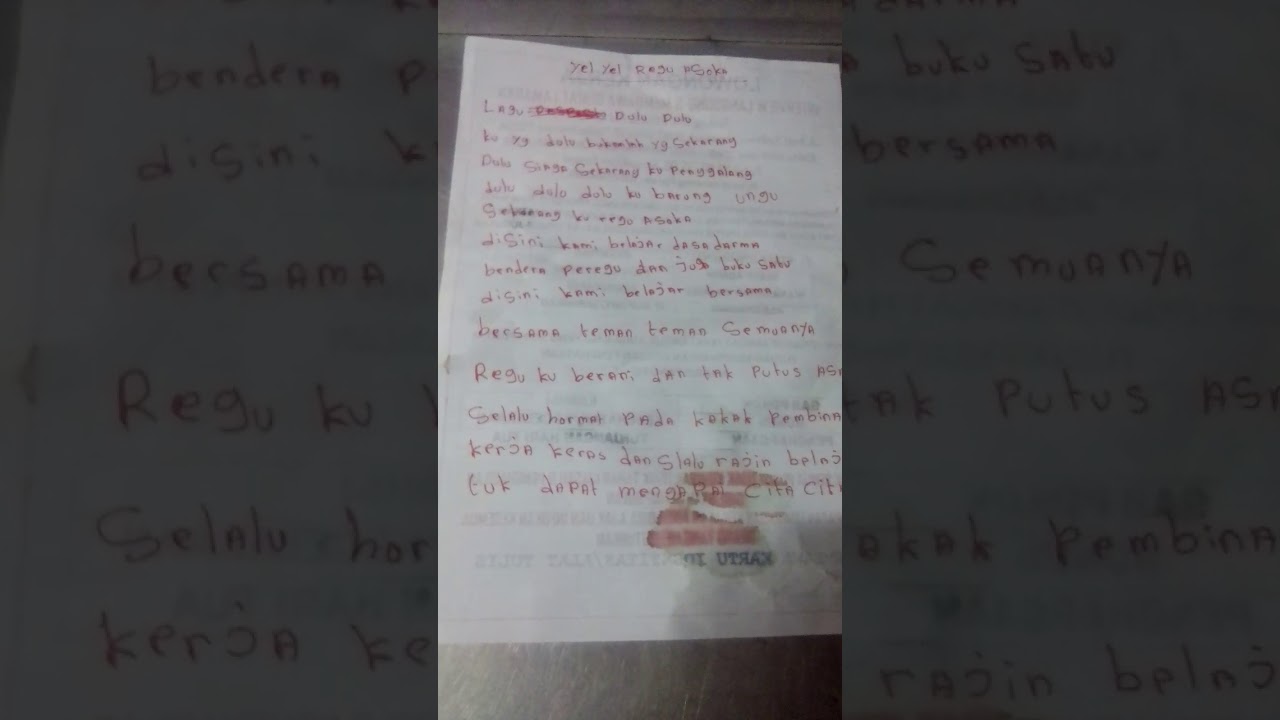 Yel Yel Regu ASoka
LAgu Dulu Dulu
ku yg dulu bukanlah yg Sekarang
Dulu Siaga Sekarang ku Penggalang
dulu dulu dulu ku barung ungu
Sekarang ku regu ASoka
diSini kami belajar dasa darma
bendera peregu dan juga buku Saku
diSini kami belajar bersama
bersama teman teman Semuanya
Regu ku berani dan tak Putus AS
Selalu hormat pada kakak Pembina
kerja keras dan Slalu rajin belaj
tuk dapat mengapai Cita Cit
KARTU
ALAT TULIS